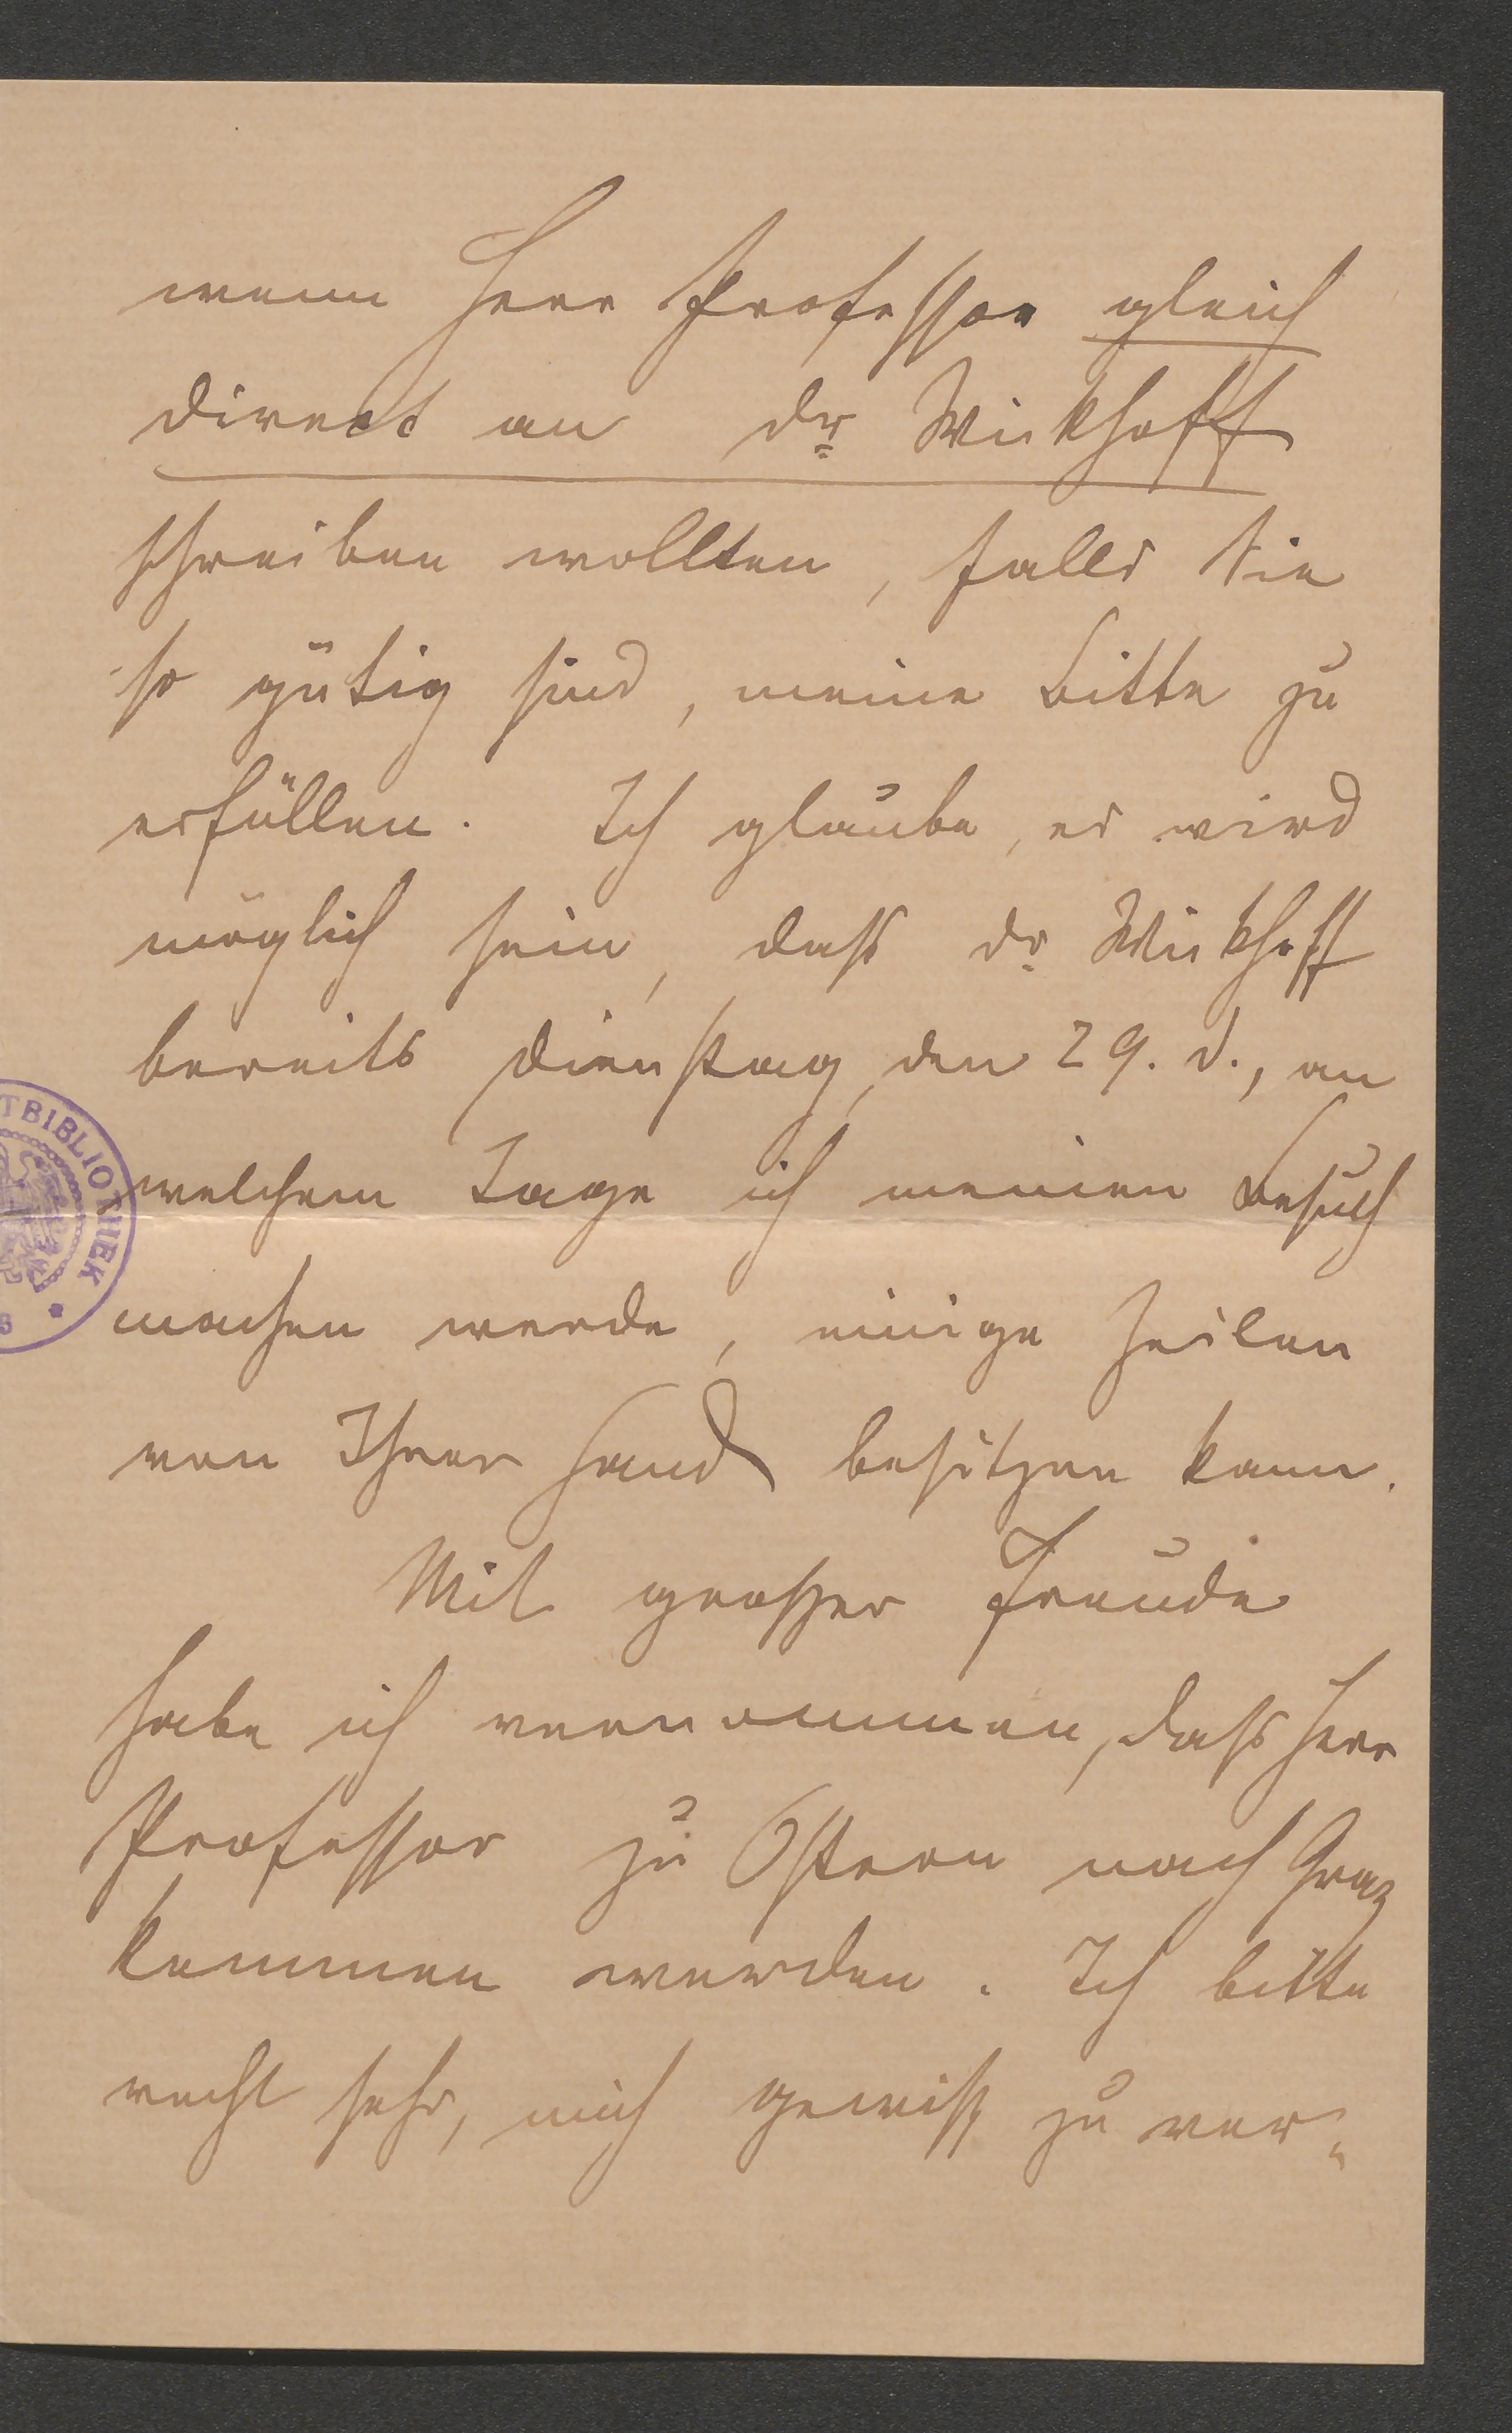 wenn Herr Professor gleich
direct an Dr Wickhoff
schreiben wollten, falls Sie
so gütig sind, meine Bitte zu
erfüllen. Ich glaube, es wird
möglich sein, dass Dr Wickhoff
bereits Dienstag, den 29. d., an
welchem Tage ich meinen Besuch
machen werde, einige Zeilen
von Ihrer Hand besitzen kann.
Mit großer Freude
habe ich vernommen, dass Herr
Professor zu Ostern nach Graz
kommen werden. Ich bitte
recht sehr, mich gewiß zu ver-
TBIBLIOTHEK